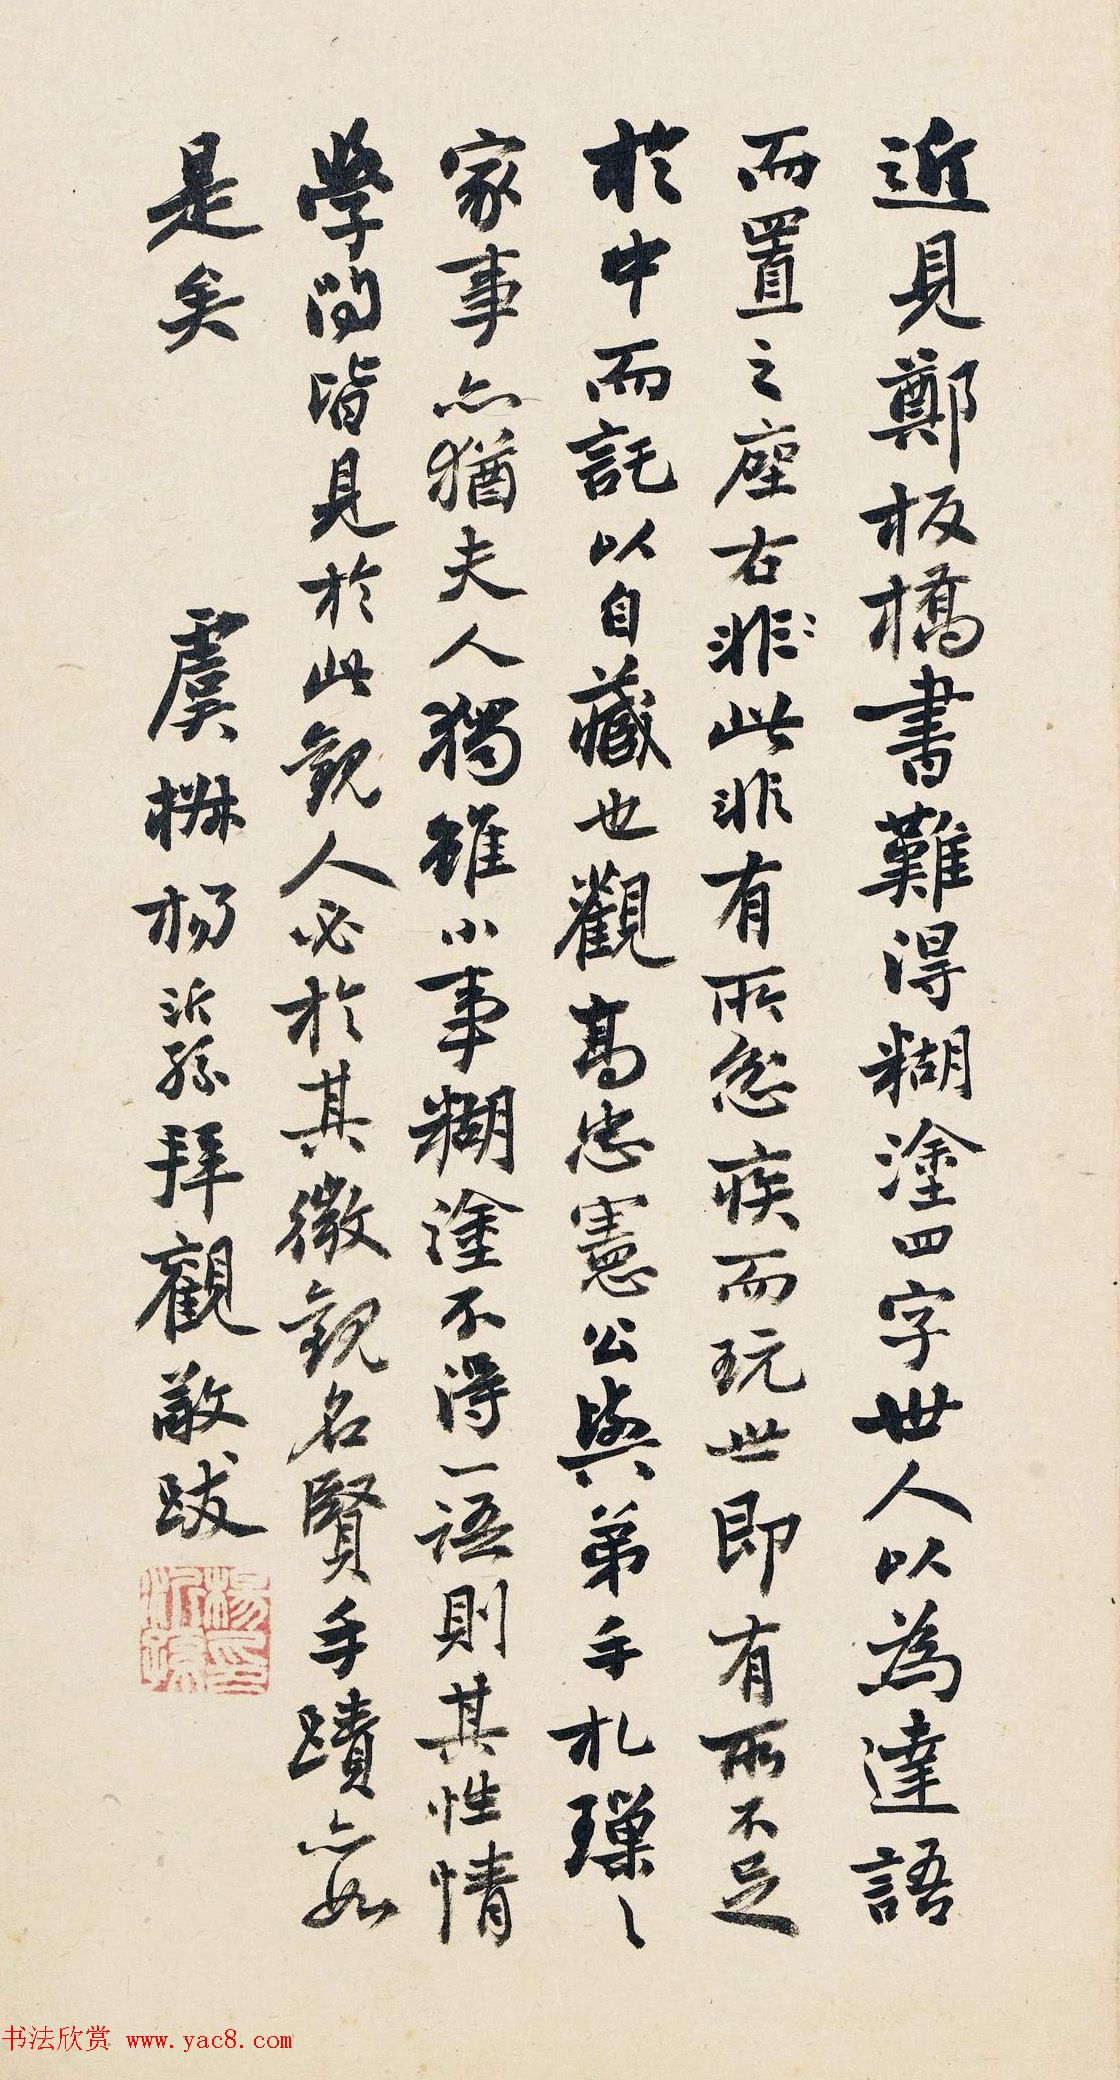 近見鄭板橋書難得糊塗四字世人以為達語
而置之座右非此非有所忿疾而玩世即有所不足
於中而託以自藏也觀高忠憲公與弟手札璅〻
家事亦猶夫人獨雖小事糊塗不得一語則其性情
學問皆見於此觀人必於其微觀名賢手蹟亦如
是矣
虞楊沂孫拜觀敬跋
楊印沂孫
书法欣赏 www.yac8.com